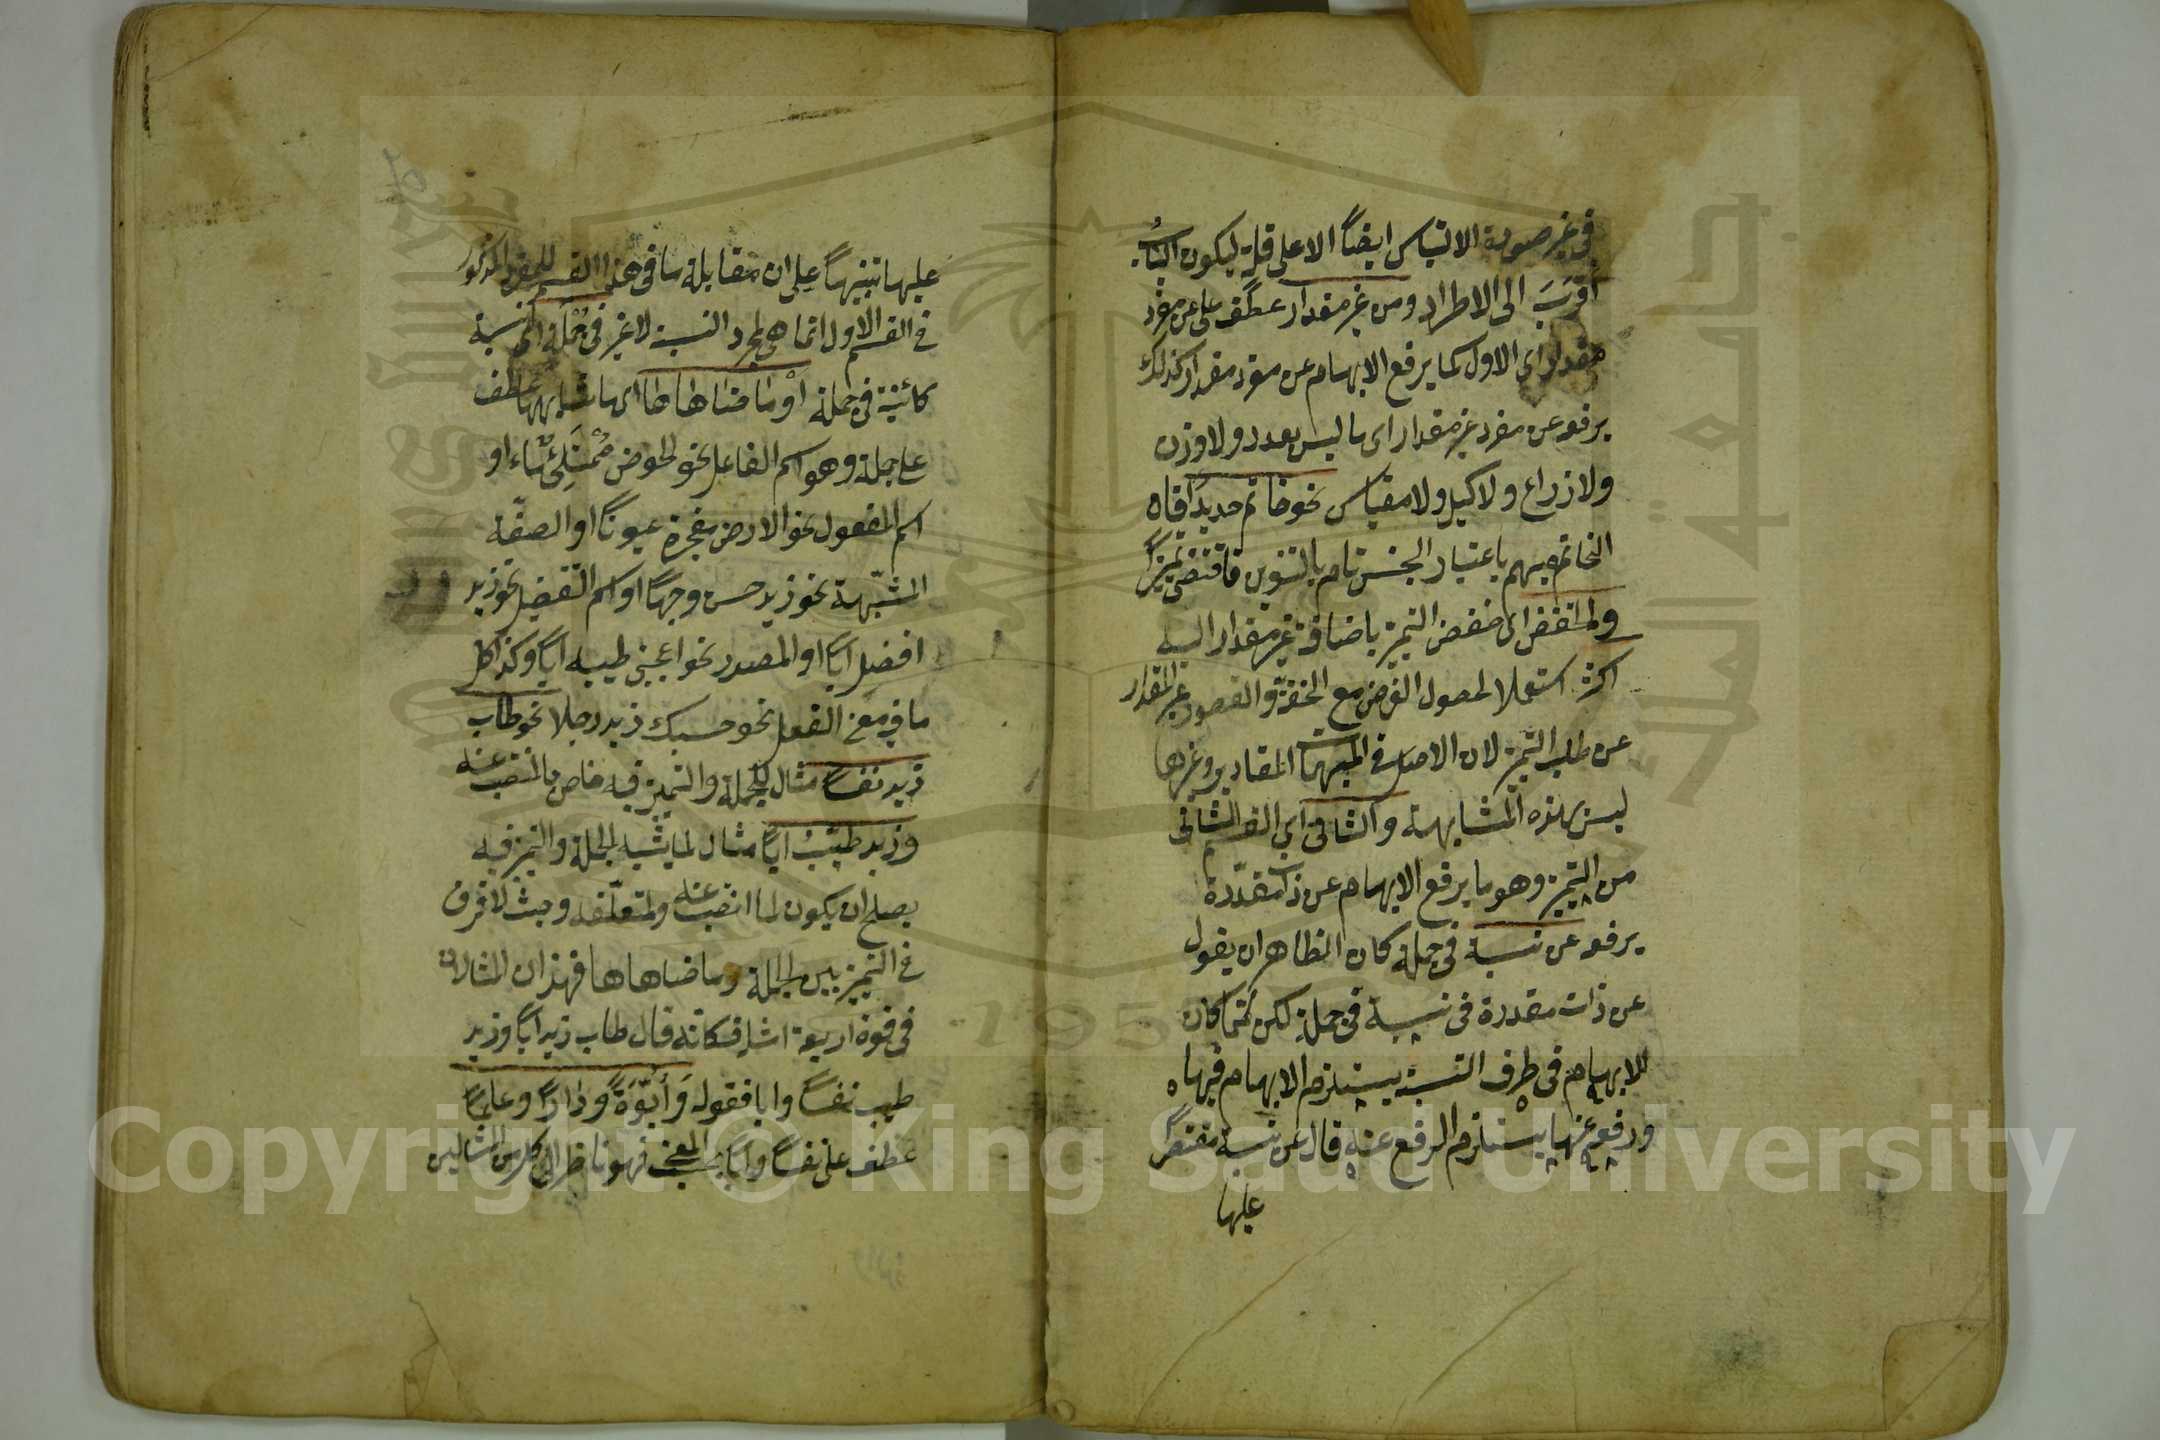 في غير صورة الالتباس ايضاً الا على قلة ليكون الباب
أقربَ الى الاطراد ومن غير مقدار عطف على عن مفرد
مقدار اى الاول كما يرفع الابهام عن مفرد مقدار كذلك
يرفعه عن مفرد غير مقدار اى ما ليس بعدد ولا وزن
ولا ذراع ولا كيل ولا مقياس نحو خاتم حديداً فان
الخاتم مبهم باعتبار الجنس تام بالتنوين فاقتضى تميزاً
والخفض اى خفض التميز باضافة غير مقدار اليه
اكثر استعمالا لحصول الغرض مع الخفة والقصور غير المقدار
عن طلب التميز لان الاصل في المبهمات المقادير وغيرها
ليس بهذه المشابهة والثانى اى القسم الثانى
من التميز وهو ما يرفع الابهام عن ذات مقدّرة
يرفعه عن نسبة فى جملة كان الظاهر ان يقول
عن ذات مقدرة فى نسبة فى جملة لكن لما كان
الابهام فى طرف النسبة يستلزم الابهام فيها
ورفعه عنها يستلزم الرفع عنه قال عن نسبة مقتصراً
عليها
عليها تنبيهاً على ان مقابلة ما فى هذا القسم للمفرد المذكور
فى القسم الاول انما هى لمجرد النسبة لا غير فى جُمْلَة اى نسبة
كائنة فى جملة أوْ ما ضاهاها اى ما شابهها عطف
على جملة وهو اسم الفاعل نحو الحوض مُمْتَلِئٌ ماء او
اسم المفعول نحو الارض مفجرة عيوناً او الصفّة
المشبّهة نحو زيد حسن وجهاً او اسم التفضيل نحو زيد
افضل اباً او المصدر نحو اعجبنى طيبه اباً وكذا كل
ما فيه معنى الفعل نحو حسبك زيد رجلا نحو طاب
زيد نفساً مثال للجملة والتميز فيه خاص بالمنتصب عنه
وزيد طيّبٌ اباً مثال لما يشبه الجملة والتميز فيه
يصلح ان يكون لما انتصب عنه ولمتعلّقه وحيث لا فرق
فى التميز بين الجملة وما ضاهاها فهذان المثالان
فى قوة اربعة امثلة فكانّه قال طاب زيد اباً وزيد
طيب نفساً وابا فقوله وَأُبُوَّةً وَداراً وعلماً
عطف على نفساً واباً بحسب المعنى فهو ناظر الى كل من المثالين